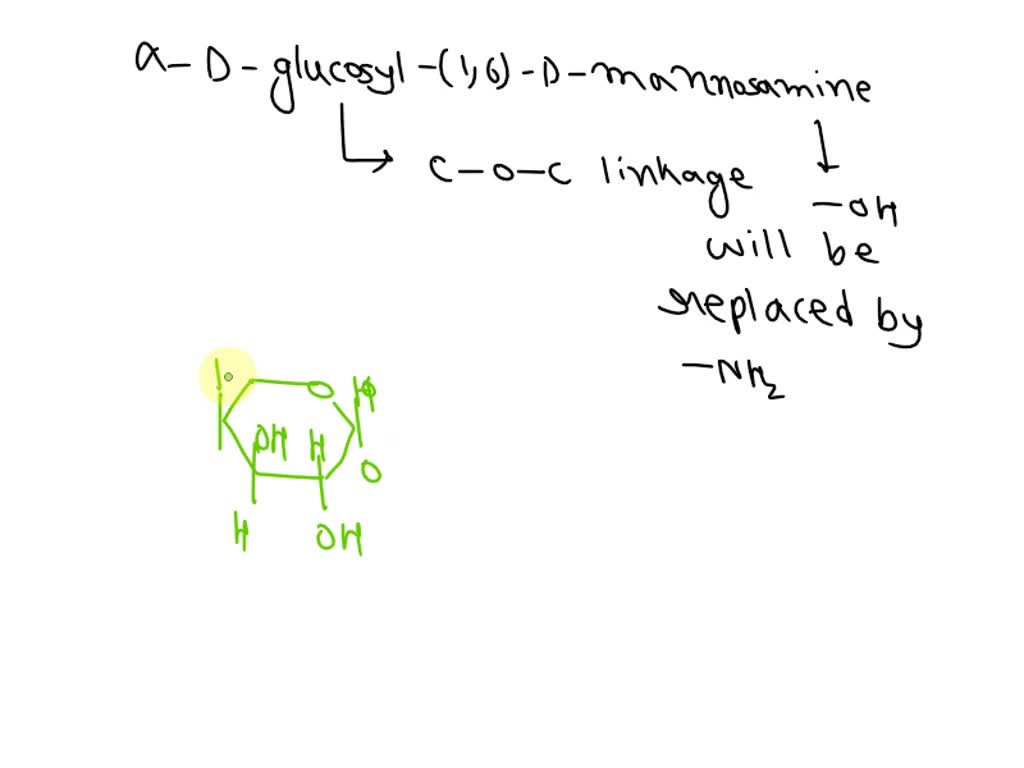 α-D-glucosyl-(1,6)-D-mannosamine
C-O-C linkage
-OH
will be
replaced by
-NH₂
O H
OH H
O
H OH